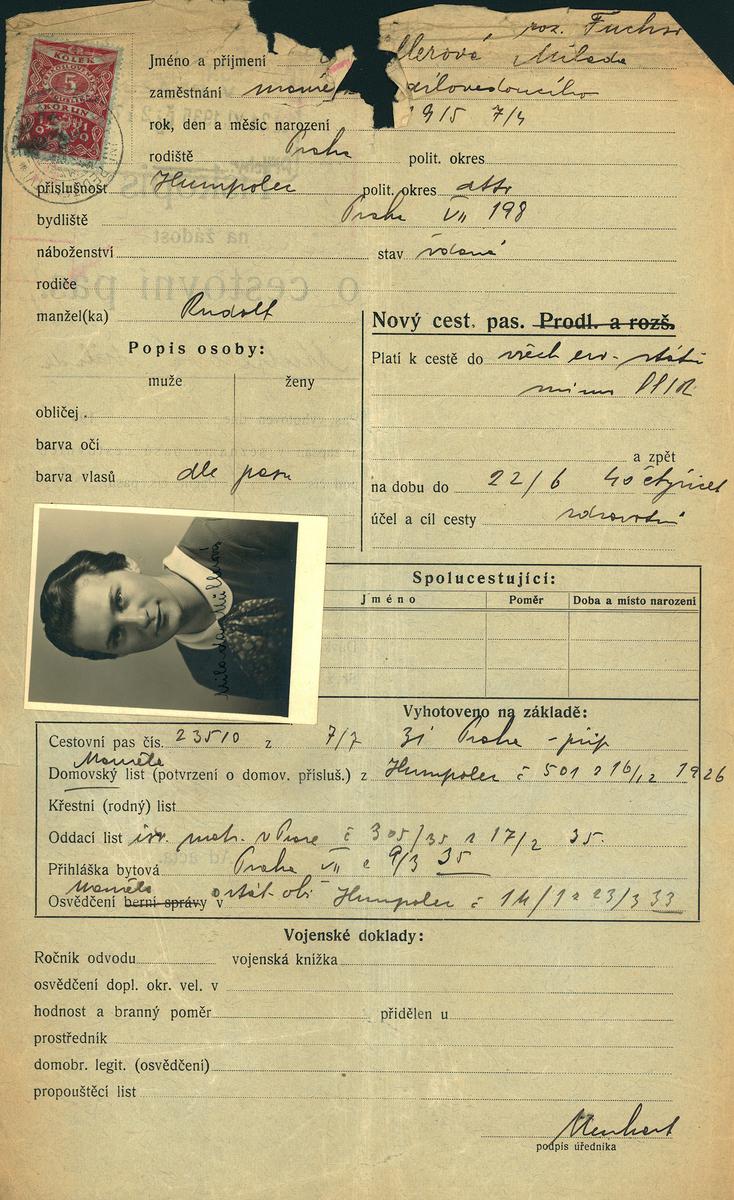 roz. Fuchs
KOLEK
5
KORUN
Jméno a příjmení llerová Milada
zaměstnání manž
rok, den a měsíc narození 1915 7/4
rodiště Praha polit. okres
příslušnost Humpolec polit. okres
bydliště Praha VII 198
náboženství stav vdaná
rodiče
manžel(ka) Rudolf
Nový cest. pas. Prodl. a rozš.
Popis osoby:
Platí k cestě do všech evr. států
muže ženy
mimo
obličej
barva očí
a zpět
barva vlasů dle pasu
na dobu do 22/6 40 čtyřicet
účel a cíl cesty zdravotní
Milada Müllerová
Spolucestující:
Jméno Poměr Doba a místo narození
Vyhotoveno na základě:
Cestovní pas čís. 23510 z 7/7 31 Praha
Manžela
Domovský list (potvrzení o domov. přísluš.) z Humpolec č 501 z 16/12 1926
Křestní (rodný) list
Oddací list izr. matr. v Praze č 305/35 z 17/2 35.
Přihláška bytová Praha VII z 9/3 35
Manžela
Osvědčení berní správy v o stát. obč. Humpolec č 14/1 z 23/3 33
Vojenské doklady:
Ročník odvodu vojenská knížka
osvědčení dopl. okr. vel. v
hodnost a branný poměr přidělen u
prostředník
domobr. legit. (osvědčení)
propouštěcí list
podpis úředníka